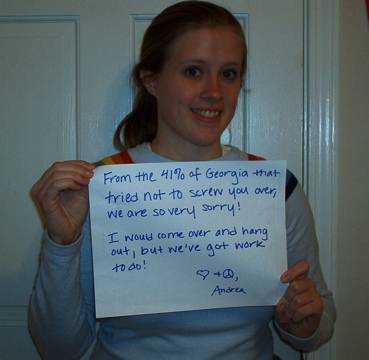 From the 41% of Georgia that
tried not to screw you over,
we are so very sorry!
I would come over and hang
out, but we've got work
to do!
♡ + ☮,
Andrea